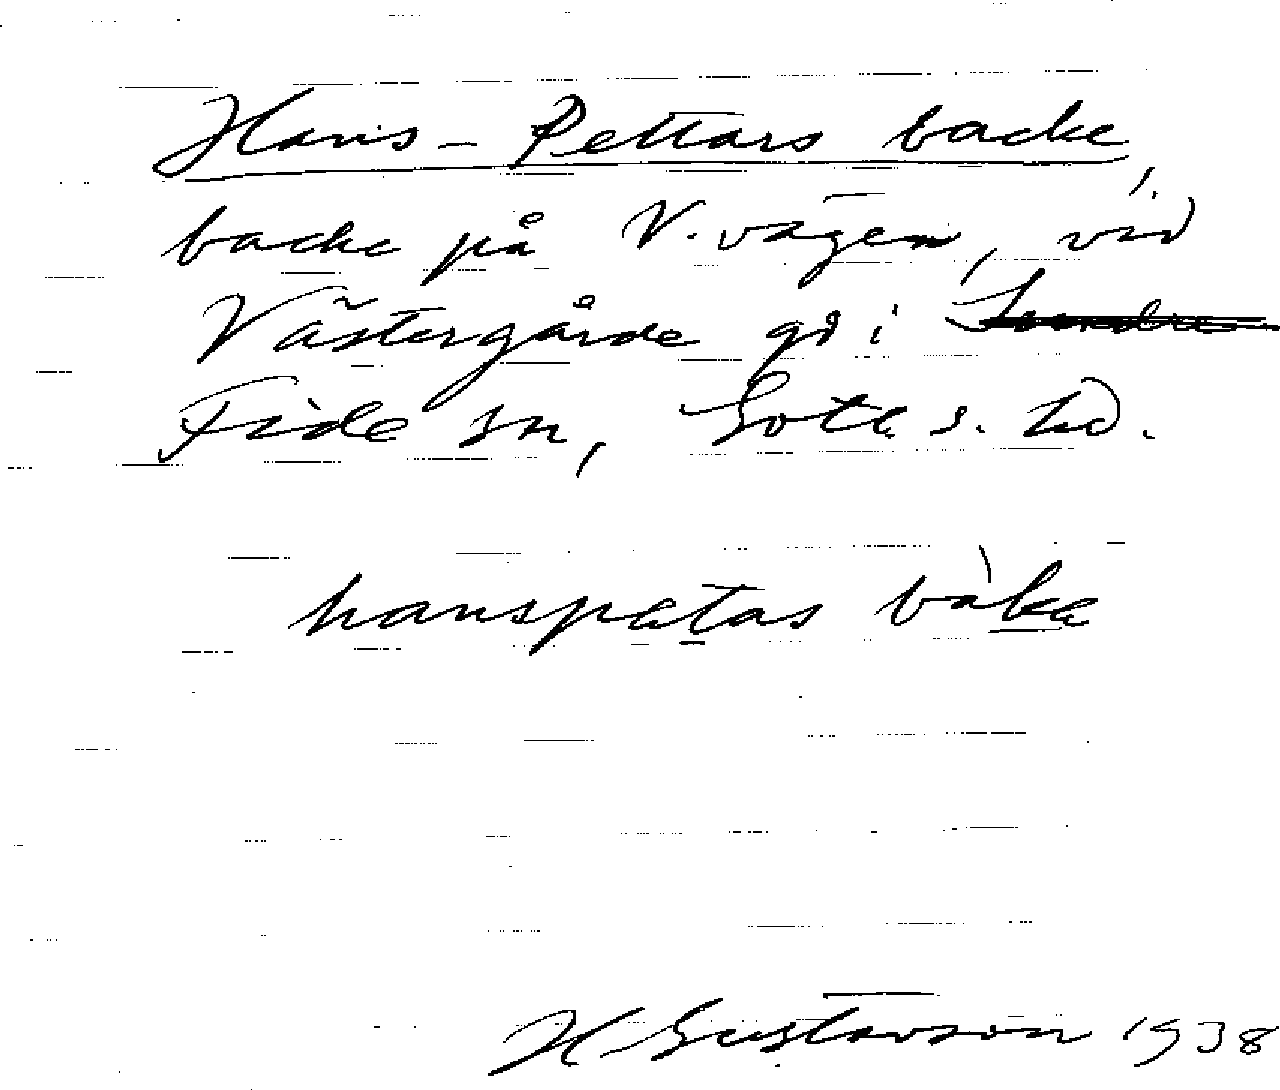 Hans-Pettars backe,
backe på V. vägen, vid
Västergårde gd i
Fide sn, Gotl. s. hd.
hanspetas bàke
H. Gustavson 1938